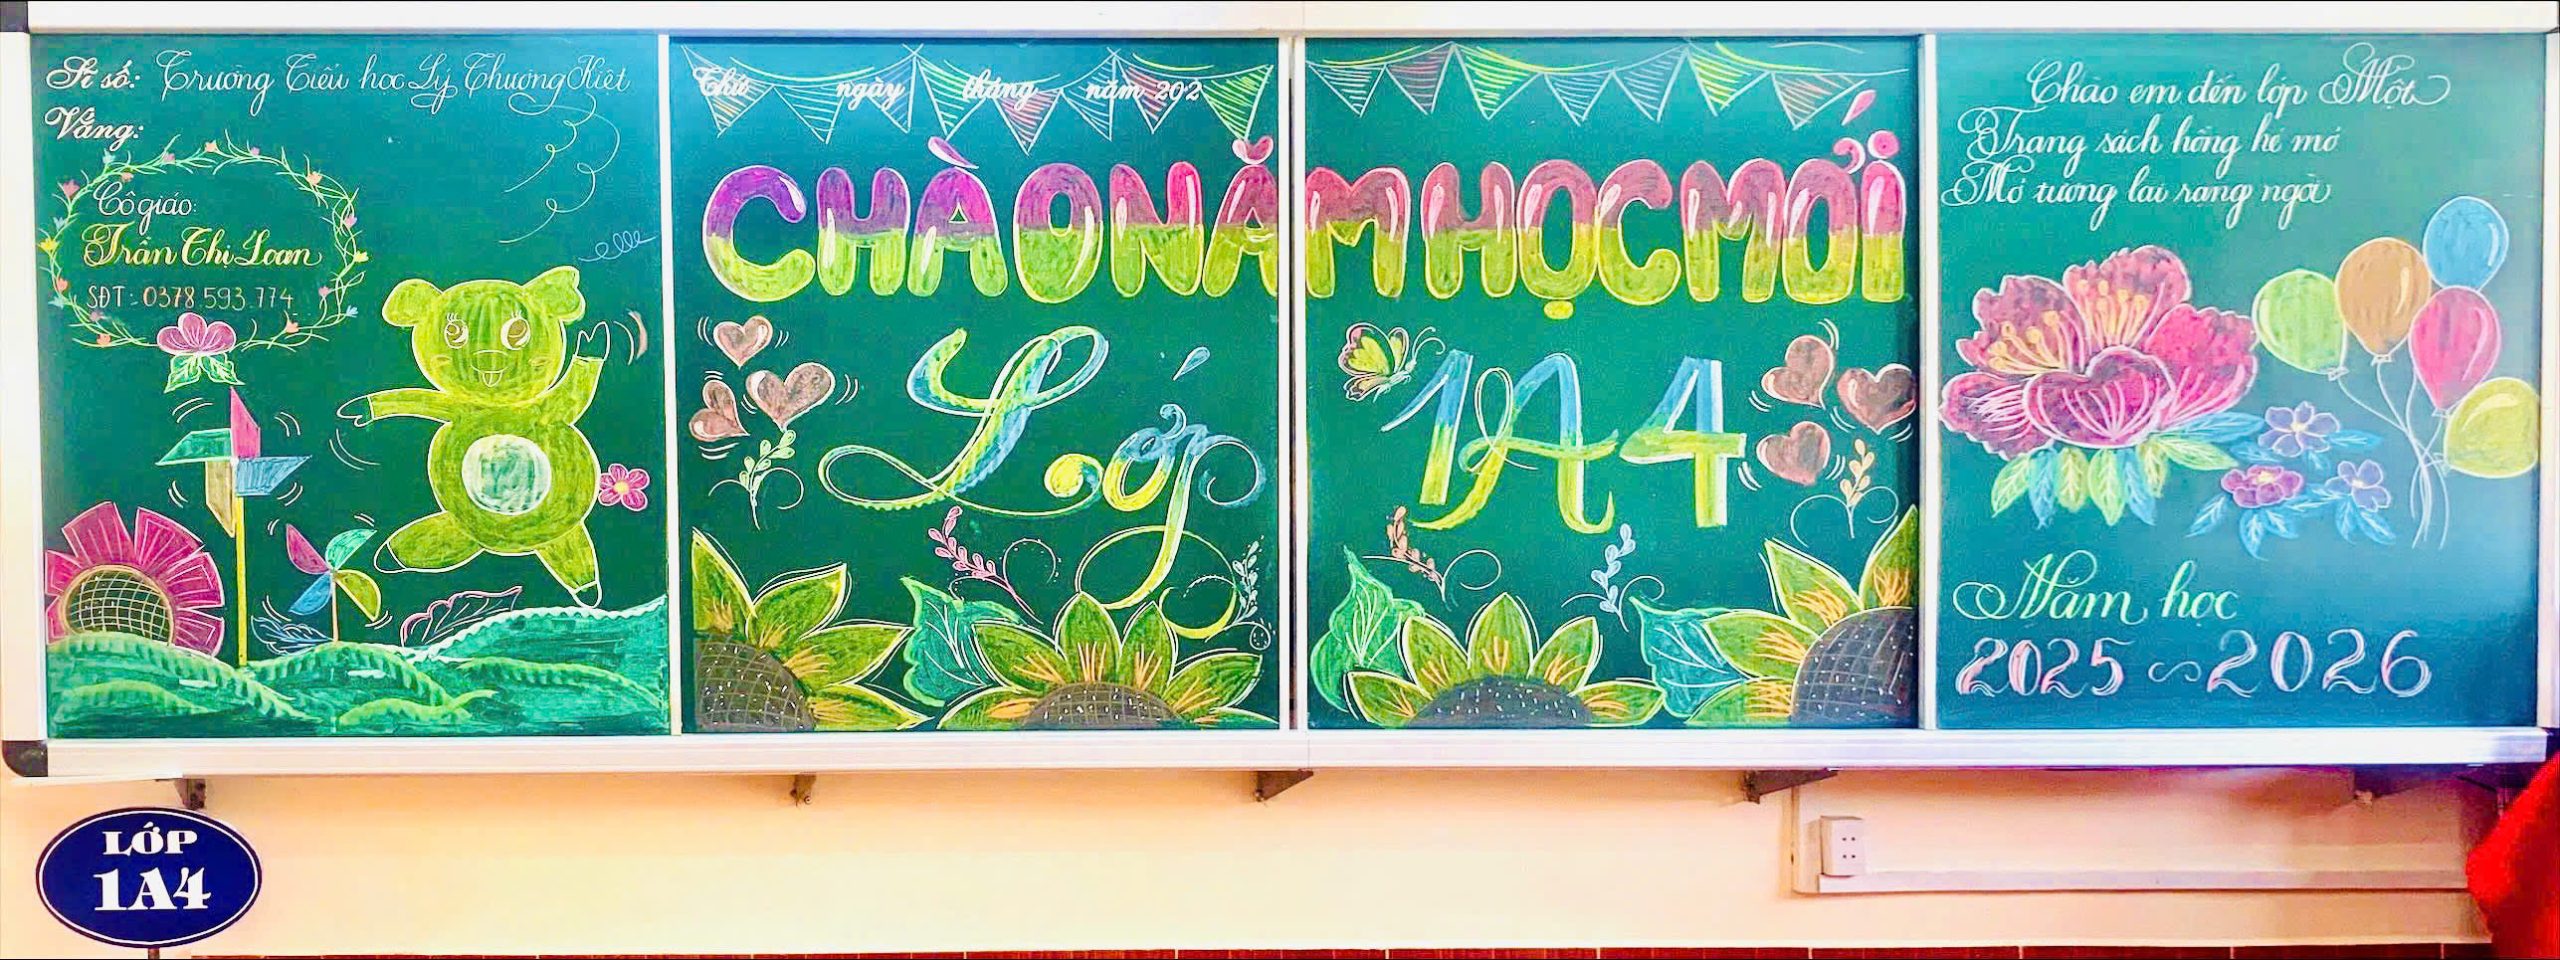 Sĩ số: Trường Tiểu học Lý Thường Kiệt
Vắng:
Cô giáo:
Trần Thị Loan
SĐT: 0378.593.774
Thứ ngày tháng năm 202
CHÀO NĂM HỌC MỚI
Lớp 1A4
Chào em đến lớp Một
Trang sách hồng hé mở
Mở tương lai rạng ngời
Năm học
2025 ~ 2026
LỚP
1A4